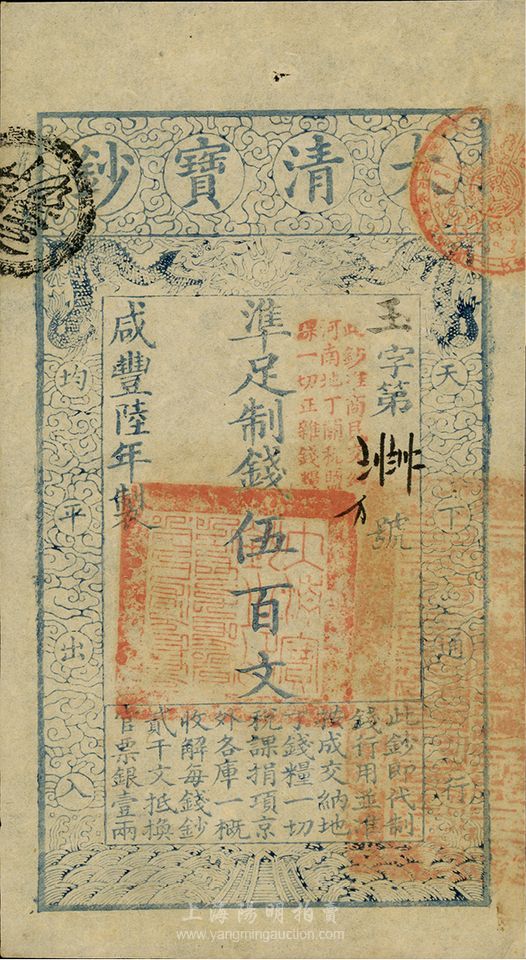 大清寶鈔
天下通行
均平出入
玉字第
號
此鈔準商民交納
河南地丁關稅鹽
課一切正雜錢糧
準足制錢伍百文
咸豐陸年製
大清寶鈔之印
此鈔即代制
錢行用並準
按成交納地
丁錢糧一切
稅課捐項京
外各庫一概
收解每錢鈔
貳千文抵換
官票銀壹兩
上海陽明拍賣
www.yangmingauction.com